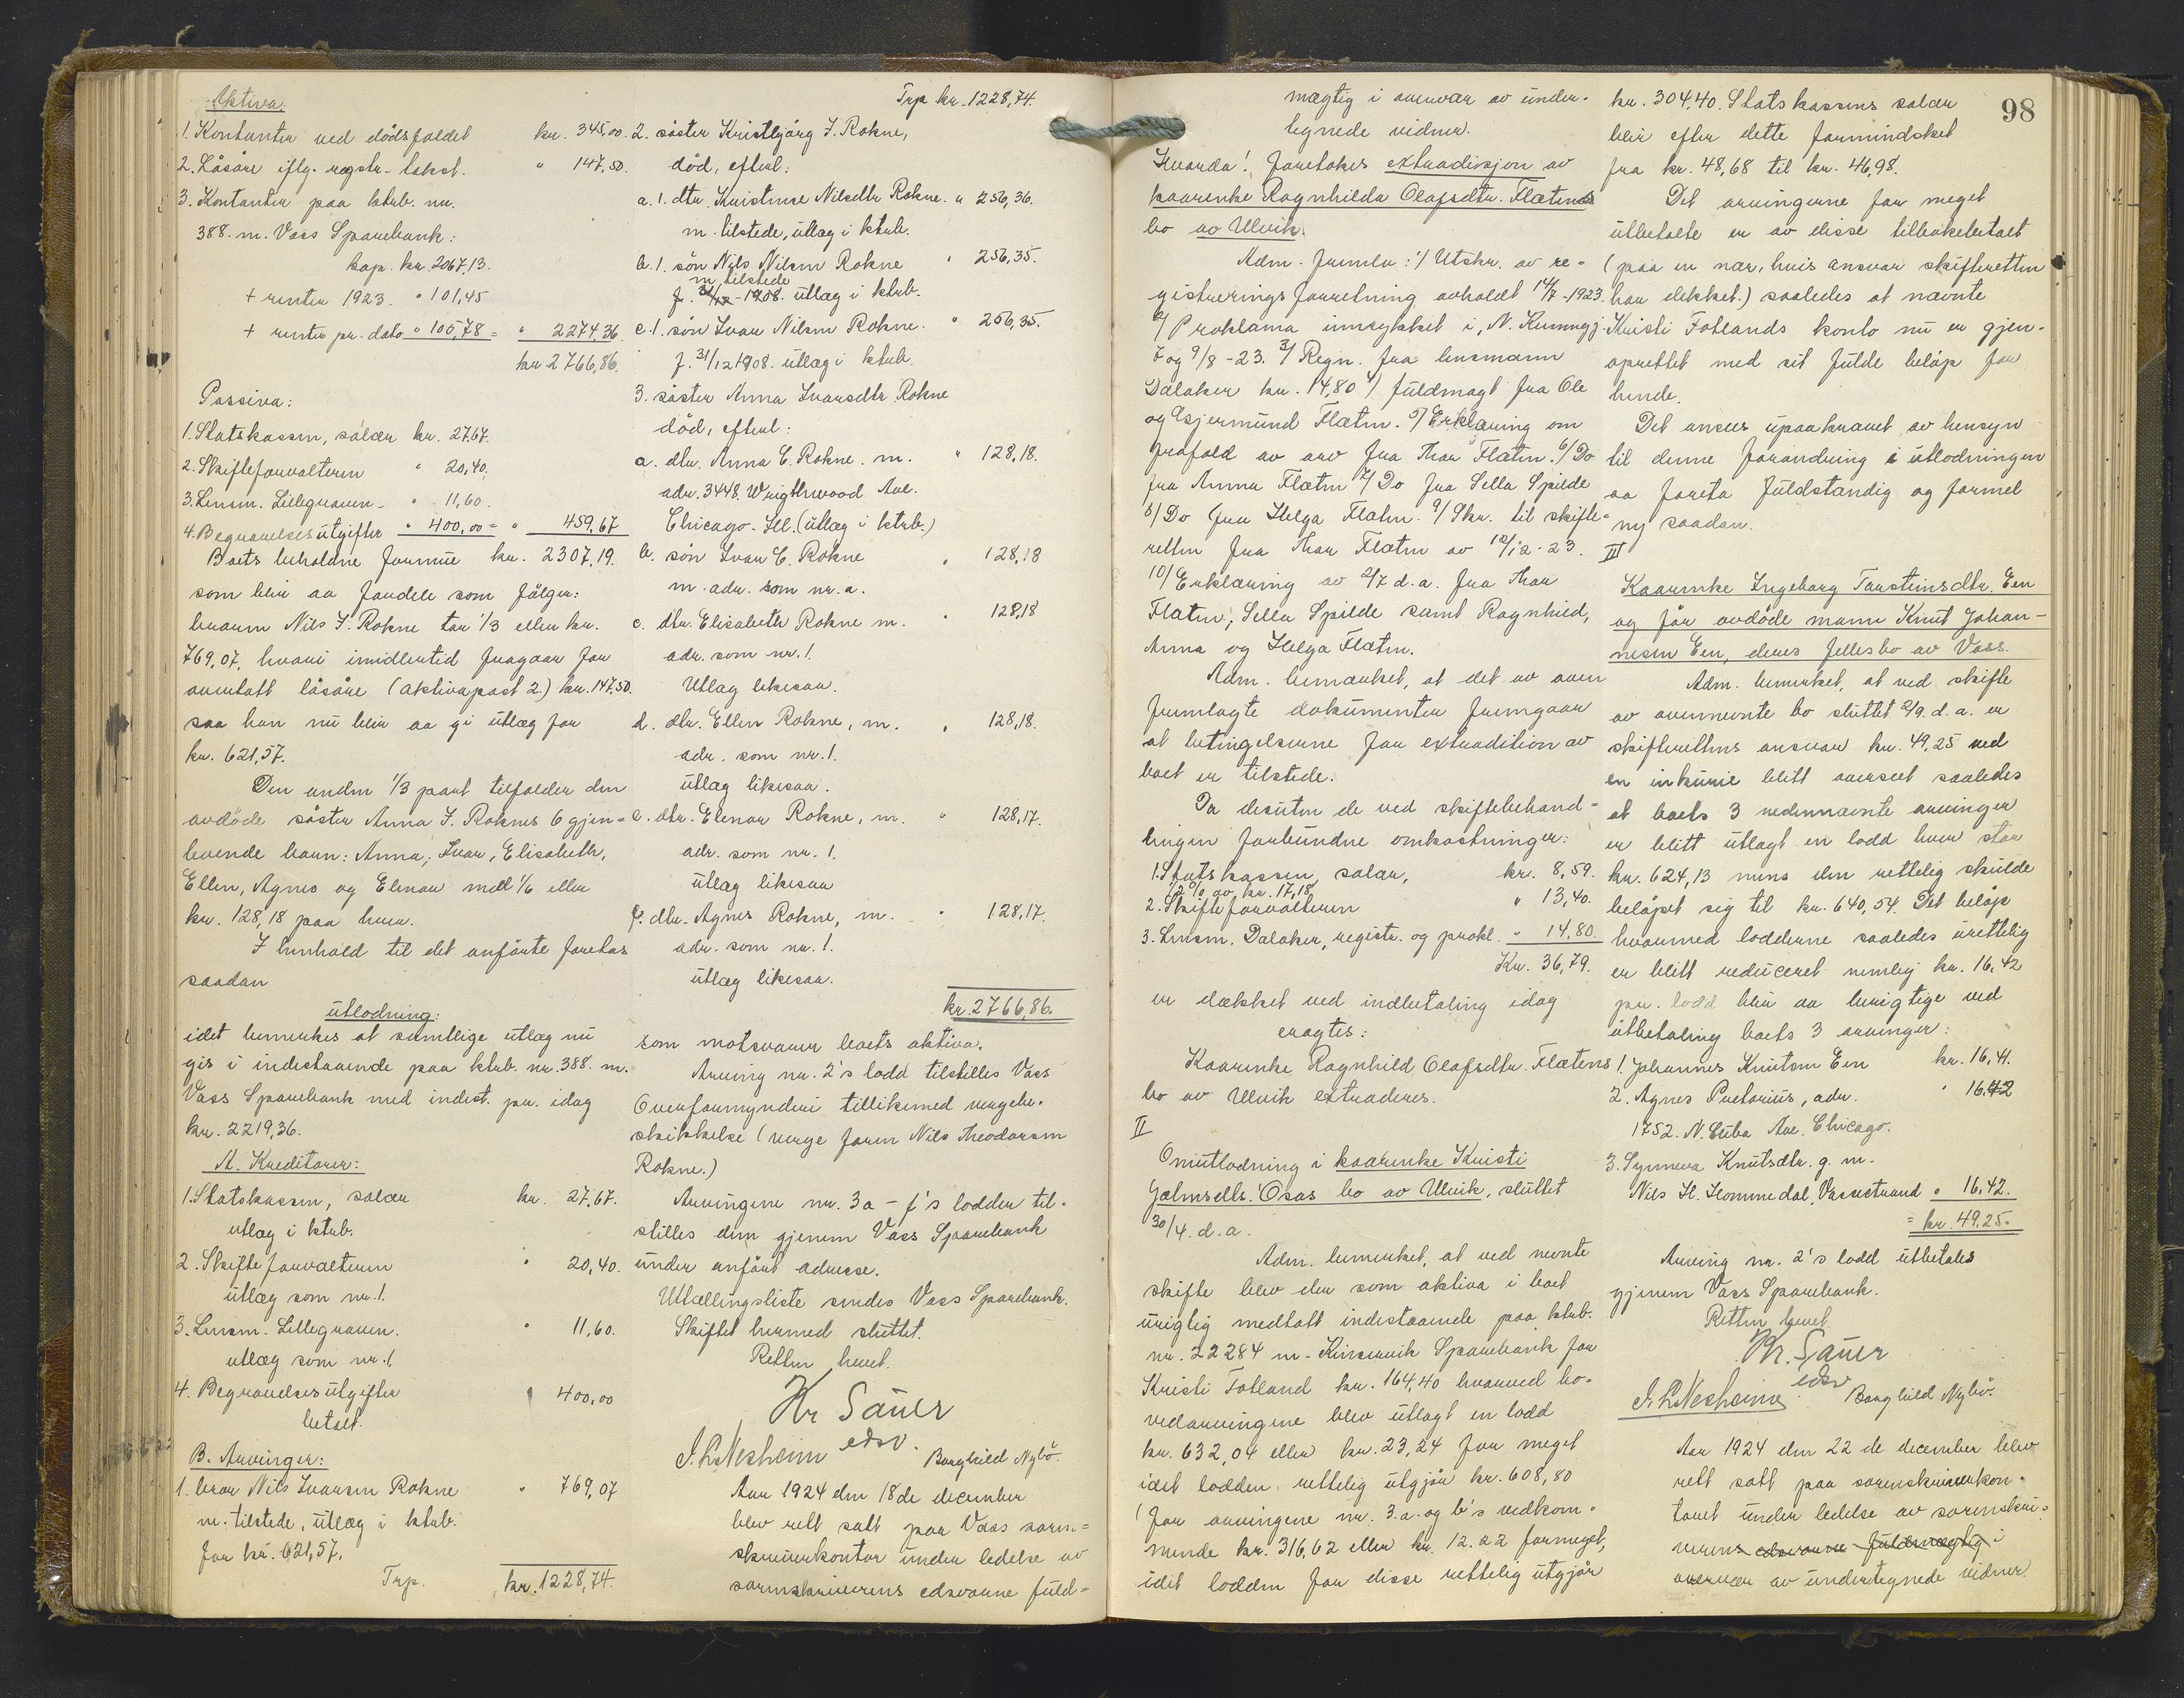 Aktiva:
1. Kontanter ved dödsfaldet kr. 345,00.
2. Låsåre iflg. regstr. takst. " 147,50.
3. Kontanter paa ktrb. nr.
388. m. Vass Sparebank:
kap. kr. 2067,13.
+ renter 1923. " 101,45
+ renter pr. dato " 105,78 = " 2274,36
kr. 2766,86.
Passiva:
1. Statskassen, salær kr. 27,67.
2. Skifteforvalteren " 20,40.
3. Lensm. Lillegraven - " 11,60.
4. Begravelsesutgifter " 400,00 = " 459,67
Boets beholdne formue kr. 2307,19.
som blir aa fordele som fölger:
broren Nils I. Rokne tar 1/3 eller kr.
769,07, hvori imidlertid fragaar for
overtatt låsåre (aktivapost 2) kr. 147,50.
saa han nu blir aa gi utlæg for
kr. 621,57.
Den anden 1/3 part tilfalder den
avdöde söster Anna I. Roknes 6 gjen=
levende barn: Anna, Ivar, Elisabeth,
Ellen, Agnes og Elenor med 1/6 eller
kr. 128,18 paa hver.
I henhold til det anförte foretas
saadan
utlodning:
idet bemerkes at samtlige utlæg nu
gis i indestaaende paa ktrb. nr. 388. m.
Vass Sparebank med indest. pr. idag
kr. 2219,36.
A. Kreditorer:
1. Statskassen, salær kr. 27,67.
utlæg i ktrb.
2. Skifteforvalteren " 20,40.
utlæg som nr. 1.
3. Lensm. Lillegraven. " 11,60.
utlæg som nr. 1.
4. Begravelsesutgifter " 400,00
betalt.
B. Arvinger:
1. bror Nils Ivarsen Rokne " 769,07
m. tilstede, utlæg i ktrb.
for kr. 621,57.
Trp. kr. 1228,74.
Trp kr. 1228,74.
2. söster Kristbjörg I. Rokne,
död, efterl:
a. 1. dtr. Kristense Nilsdtr Rokne. " 256,36.
m. tilstede, utlæg i ktrb.
b. 1. sön Nils Nilsen Rokne " 256,35.
m tilstede
f. 31/12-1908. utlæg i ktrb.
c. 1. sön Ivar Nilsen Rokne. " 256,35.
f. 31/12 1908. utlæg i ktrb.
3. söster Anna Ivarsdtr Rokne
död, efterl:
a. dtr. Anna C. Rokne. m. " 128,18.
adr. 3448. Wrigthwood Ave.
Chicago. Ill. (utlæg i ktrb.)
b. sön Ivar C. Rokne " 128,18
m. adr. som nr. a.
c. dtr. Elisabeth Rokne m. " 128,18
adr. som nr. 1.
Utlæg likesaa.
d. dtr. Ellen Rokne, m. " 128,18.
adr. som nr. 1.
utlæg likesaa.
e. dtr. Elenor Rokne, m. " 128,17.
adr. som nr. 1.
utlæg likesaa
f. dtr. Agnes Rokne, m. " 128,17.
adr. som nr. 1.
utlæg likesaa.
kr. 2766,86.
som motsvarer boets aktiva.
Arving nr. 2's lodd tilstilles Vass
Overformynderi tillikemed verge-
skikkelse (verge faren Nils Theodorsen
Rokne.)
Arvingene nr. 3a - f's lodder til-
stilles dem gjenem Vass Sparebank
under anfört adresse.
Utællingsliste sendes Vass Sparebank.
Skiftet hermed sluttet.
Retten hevet.
Hr Sauer
edsv.
I. L. Nesheim Borghild Nybö.
Aar 1924 den 18de december
blev rett satt paa Vass soren=
skriverkontor under ledelse av
sorenskriverens edsvorne fuld=
mægtig i overvær av under-
tegnede vidner.
Hvorda! foretokes extradisjon av
kaarenke Ragnhilda Olafsdtr. Flætens
bo av Ulvik.
Adm. fremla: 1/ Utskr. av re-
gistreringsforretning avholdt 14/7-1923.
2/ Proklama innrykket i, N. Kunngj.
7 og 9/8-23. 3/ Regn. fra lensmann
Dalaker kr. 14,80 4/ fuldmagt fra Ole
og Gjermund Flæten. 5/ Erklæring om
frafald av arv fra Thor Flæten. 6/ Do
fra Anna Flæten 7/ Do fra Sella Spilde
8/ Do fra Helga Flæten. 9/ Skr. til skifte-
retten fra Thor Flæten av 12/12-23.
10/ Erklæring av 2/7 d.a. fra Thor
Flæten, Sella Spilde samt Ragnhild,
Anna og Helga Flæten.
Adm. bemerket, at det av oven
fremlagte dokumenter fremgaar
at betingelserne for extradition av
boet er tilstede.
Da desuten de ved skiftebehand-
lingen forbundne omkostninger:
1. Statskassen, salær, kr. 8,59.
1/2 % av kr. 17,18
2. Skifteforvalteren " 13,40.
3. Lensm. Dalaker, registr. og prokl. " 14,80.
Kr. 36,79.
er dækket ved indbetaling idag
eragtes:
Kaarenke Ragnhild Olafsdtr. Flætens
bo av Ulvik extraderes.
II
Omutlodning i kaarenke Kristi
Hjelmsdtr. Osas bo av Ulvik, sluttet
30/4. d. a.
Adm. bemerket, at ved nevnte
skifte blev der som aktiva i boet
urigtig medtatt indestaaende paa ktrb.
nr. 22284 m. Kinservik Sparebank for
Kristi Fotland kr. 164,40 hvorved ho-
vedarvingene blev utlagt en lodd
kr. 632,04 eller kr. 23,24 for meget
idet lodden rettelig utgjör kr. 608,80
(for arvingene nr. 3. a. og b's vedkom-
mende kr. 316,62 eller kr. 12.22 formeget,
idet lodden for disse rettelig utgjör
98
kr. 304,40. Statskassens salær
blir efter dette formindsket
fra kr. 48,68 til kr. 46,98.
Det arvingerne for meget
utbetalte er av disse tilbakebetalt
(paa en nær, hvis ansvar skifteretten
har dekket.) saaledes at nævnte
Kristi Fotlands konto nu er gjen-
oprettet med sit fulde belöp for
hende.
Det ansees upaakrævet av hensyn
til denne forandring i utlodningen
aa foreta fuldstændig og formel
ny saadan.
III
Kaarenke Ingeborg Torsteinsdtr. Een
og før avdöde mann Knut Johan-
nesen Een, deres fellesbo av Vass.
Adm. bemerket, at ved skifte
av ovennevnte bo sluttet 2/9. d. a. er
skifterettens ansvar kr. 49,25 ved
en inkurie blitt overseet saaledes
at boets 3 nedennævnte arvinger
er blitt utlagt en lodd hver stor
kr. 624,13 mens den rettelig skulde
belöpet sig til kr. 640,54. Det belöp
hvormed lodderne saaledes urettelig
er blitt reduceret nemlig kr. 16,42
pr. lodd blir aa berigtige ved
utbetaling boets 3 arvinger:
1. Johannes Knutsen Een kr. 16,41.
2. Agnes Pretorius, adr. " 16,42
1752. N. Cuba Ave. Chicago.
3. Synneva Knutsdtr. g. m.
Nils H. Hommedal, Vassestrand " 16,42.
= kr. 49,25.
Arving nr. 2's lodd utbetales
gjenem Vass Sparebank.
Retten hevet.
Hr. Sauer
edsv
I. L. Nesheim Borghild Nybö.
Aar 1924 den 22 de december blev
rett satt paa sorenskriverkon-
toret under ledelse av sorenskri-
verens edsvorne fuldmægtig i
overvær av undertegnede vidner